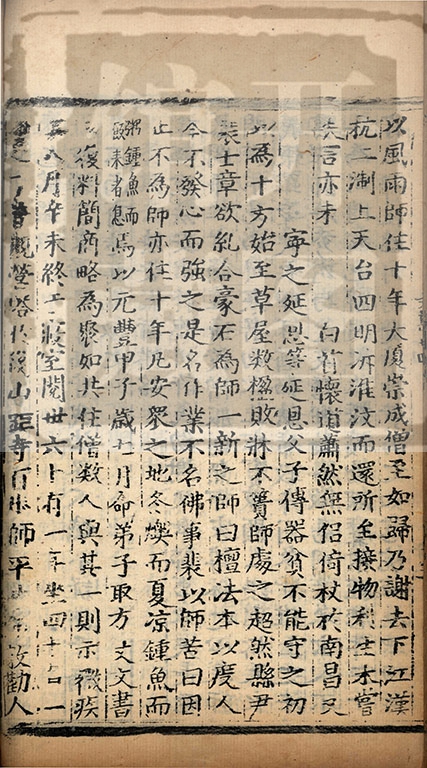 以風雨師住十年大廈崇成僧至如歸乃謝去下江漢
抗二制上天台四明泝淮汶而還所至接物利生未嘗
失言亦未 白首懷道蕭然無侶倚杖於南昌又
寧之延恩寺延恩父子傳器貧不能守之初
以為十方始至草屋數楹敗牀不簀師處之超然縣尹
裴士章欲糺合豪右為師一新之師曰檀法本以度人
今不發心而強之是名作業不名佛事裴以師苦曰因
止不為師亦住十年凡安眾之地冬燠而夏涼鍾魚而
粥鍾魚師
飯來者息焉以元豐甲子歲七月命弟子取方丈文書
復料簡商略為眾如共住僧數人與其一則示微疾
八月辛未終于寢室閱世六十有一年坐四十有一
曾觀瑩塔於後山距寺百步師平 勸人